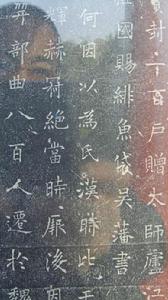 實封千百戶贈太師廬
國賜緋魚袋吳藩書
何因以為氏漢時比
輝赫冠絕當時厥後
部曲八百人遷於魏